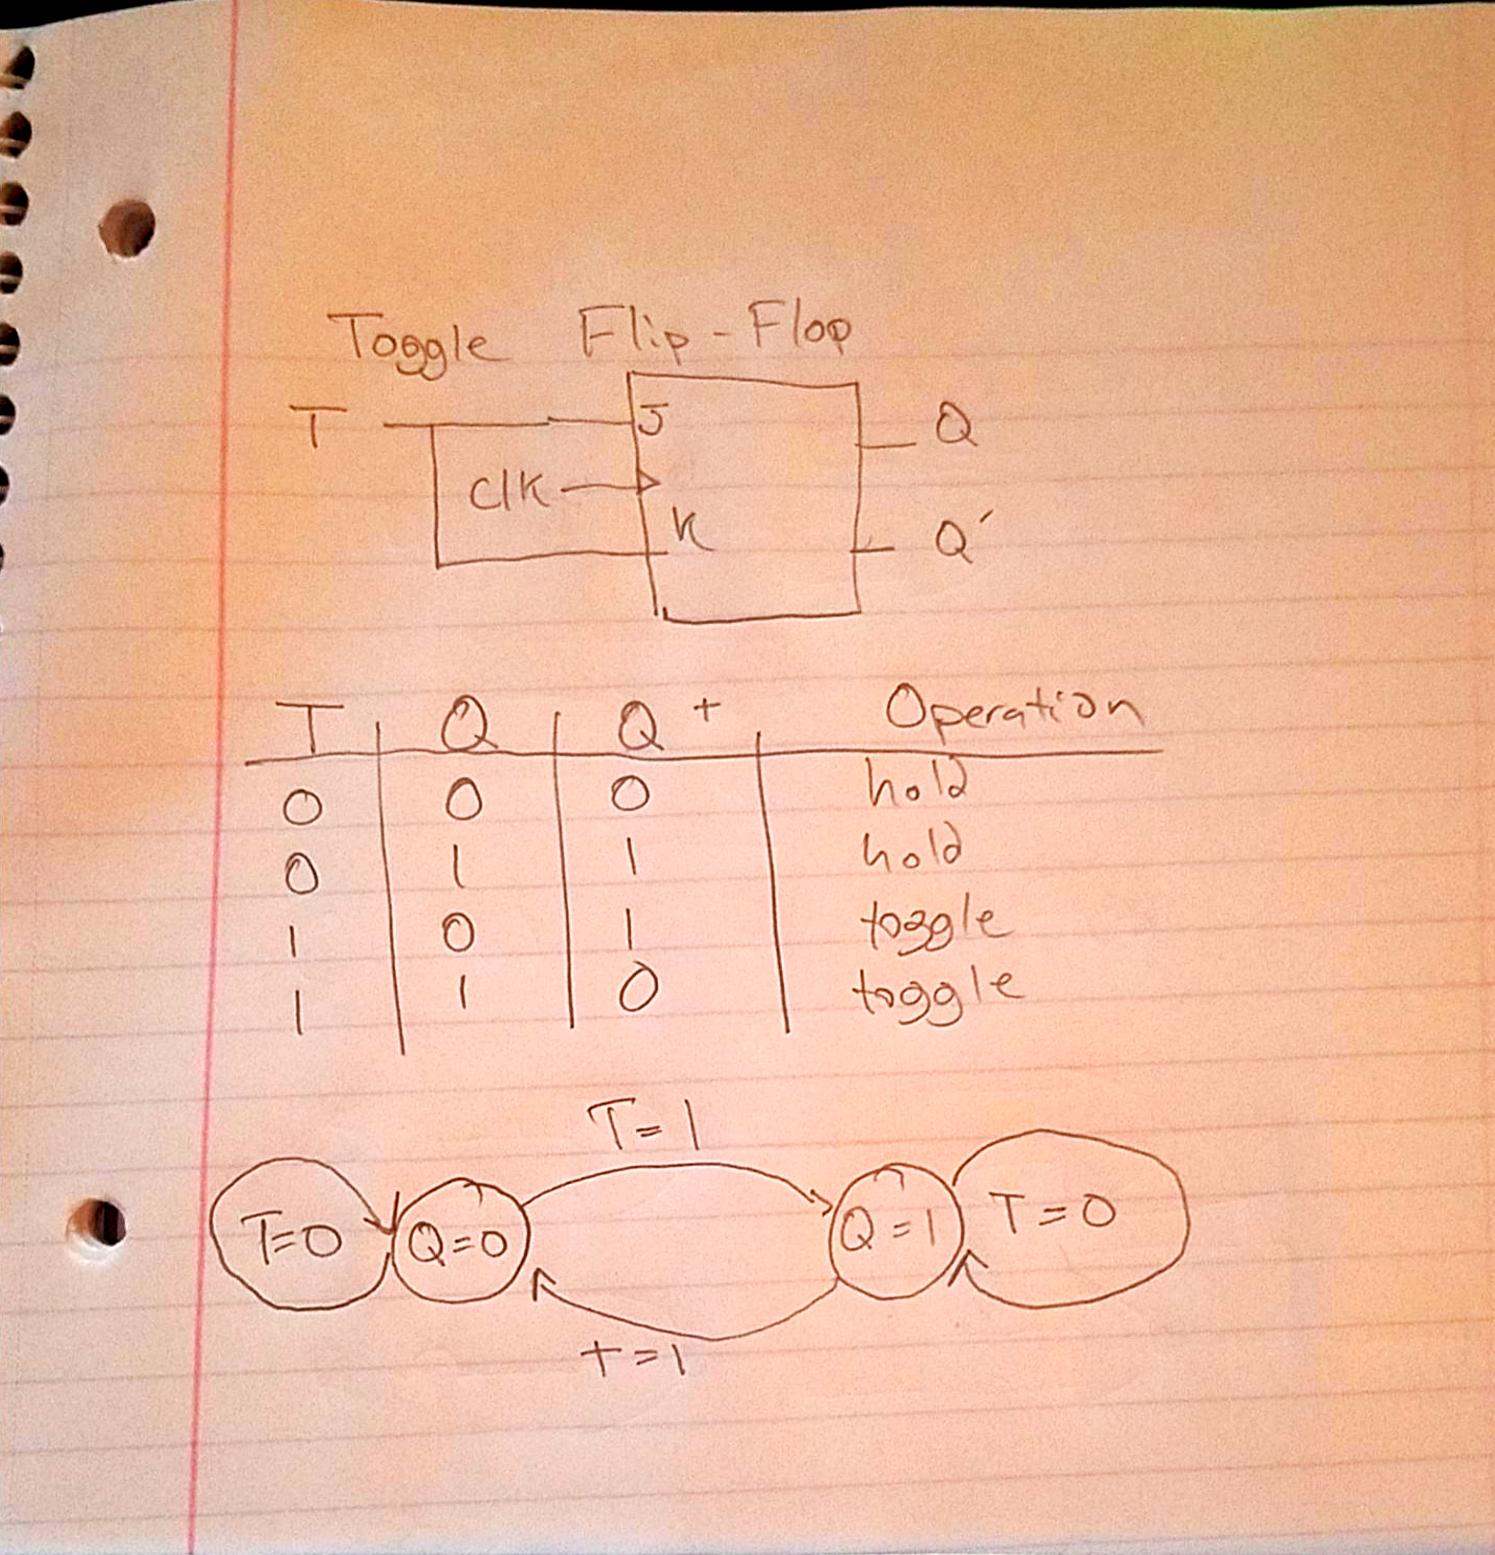 Toggle Flip-Flop
T J Q
Clk
K Q′
T Q Q+ Operation
0 0 0 hold
0 1 1 hold
1 0 1 toggle
1 1 0 toggle
T=1
T=0 Q=0 Q=1 T=0
T=1